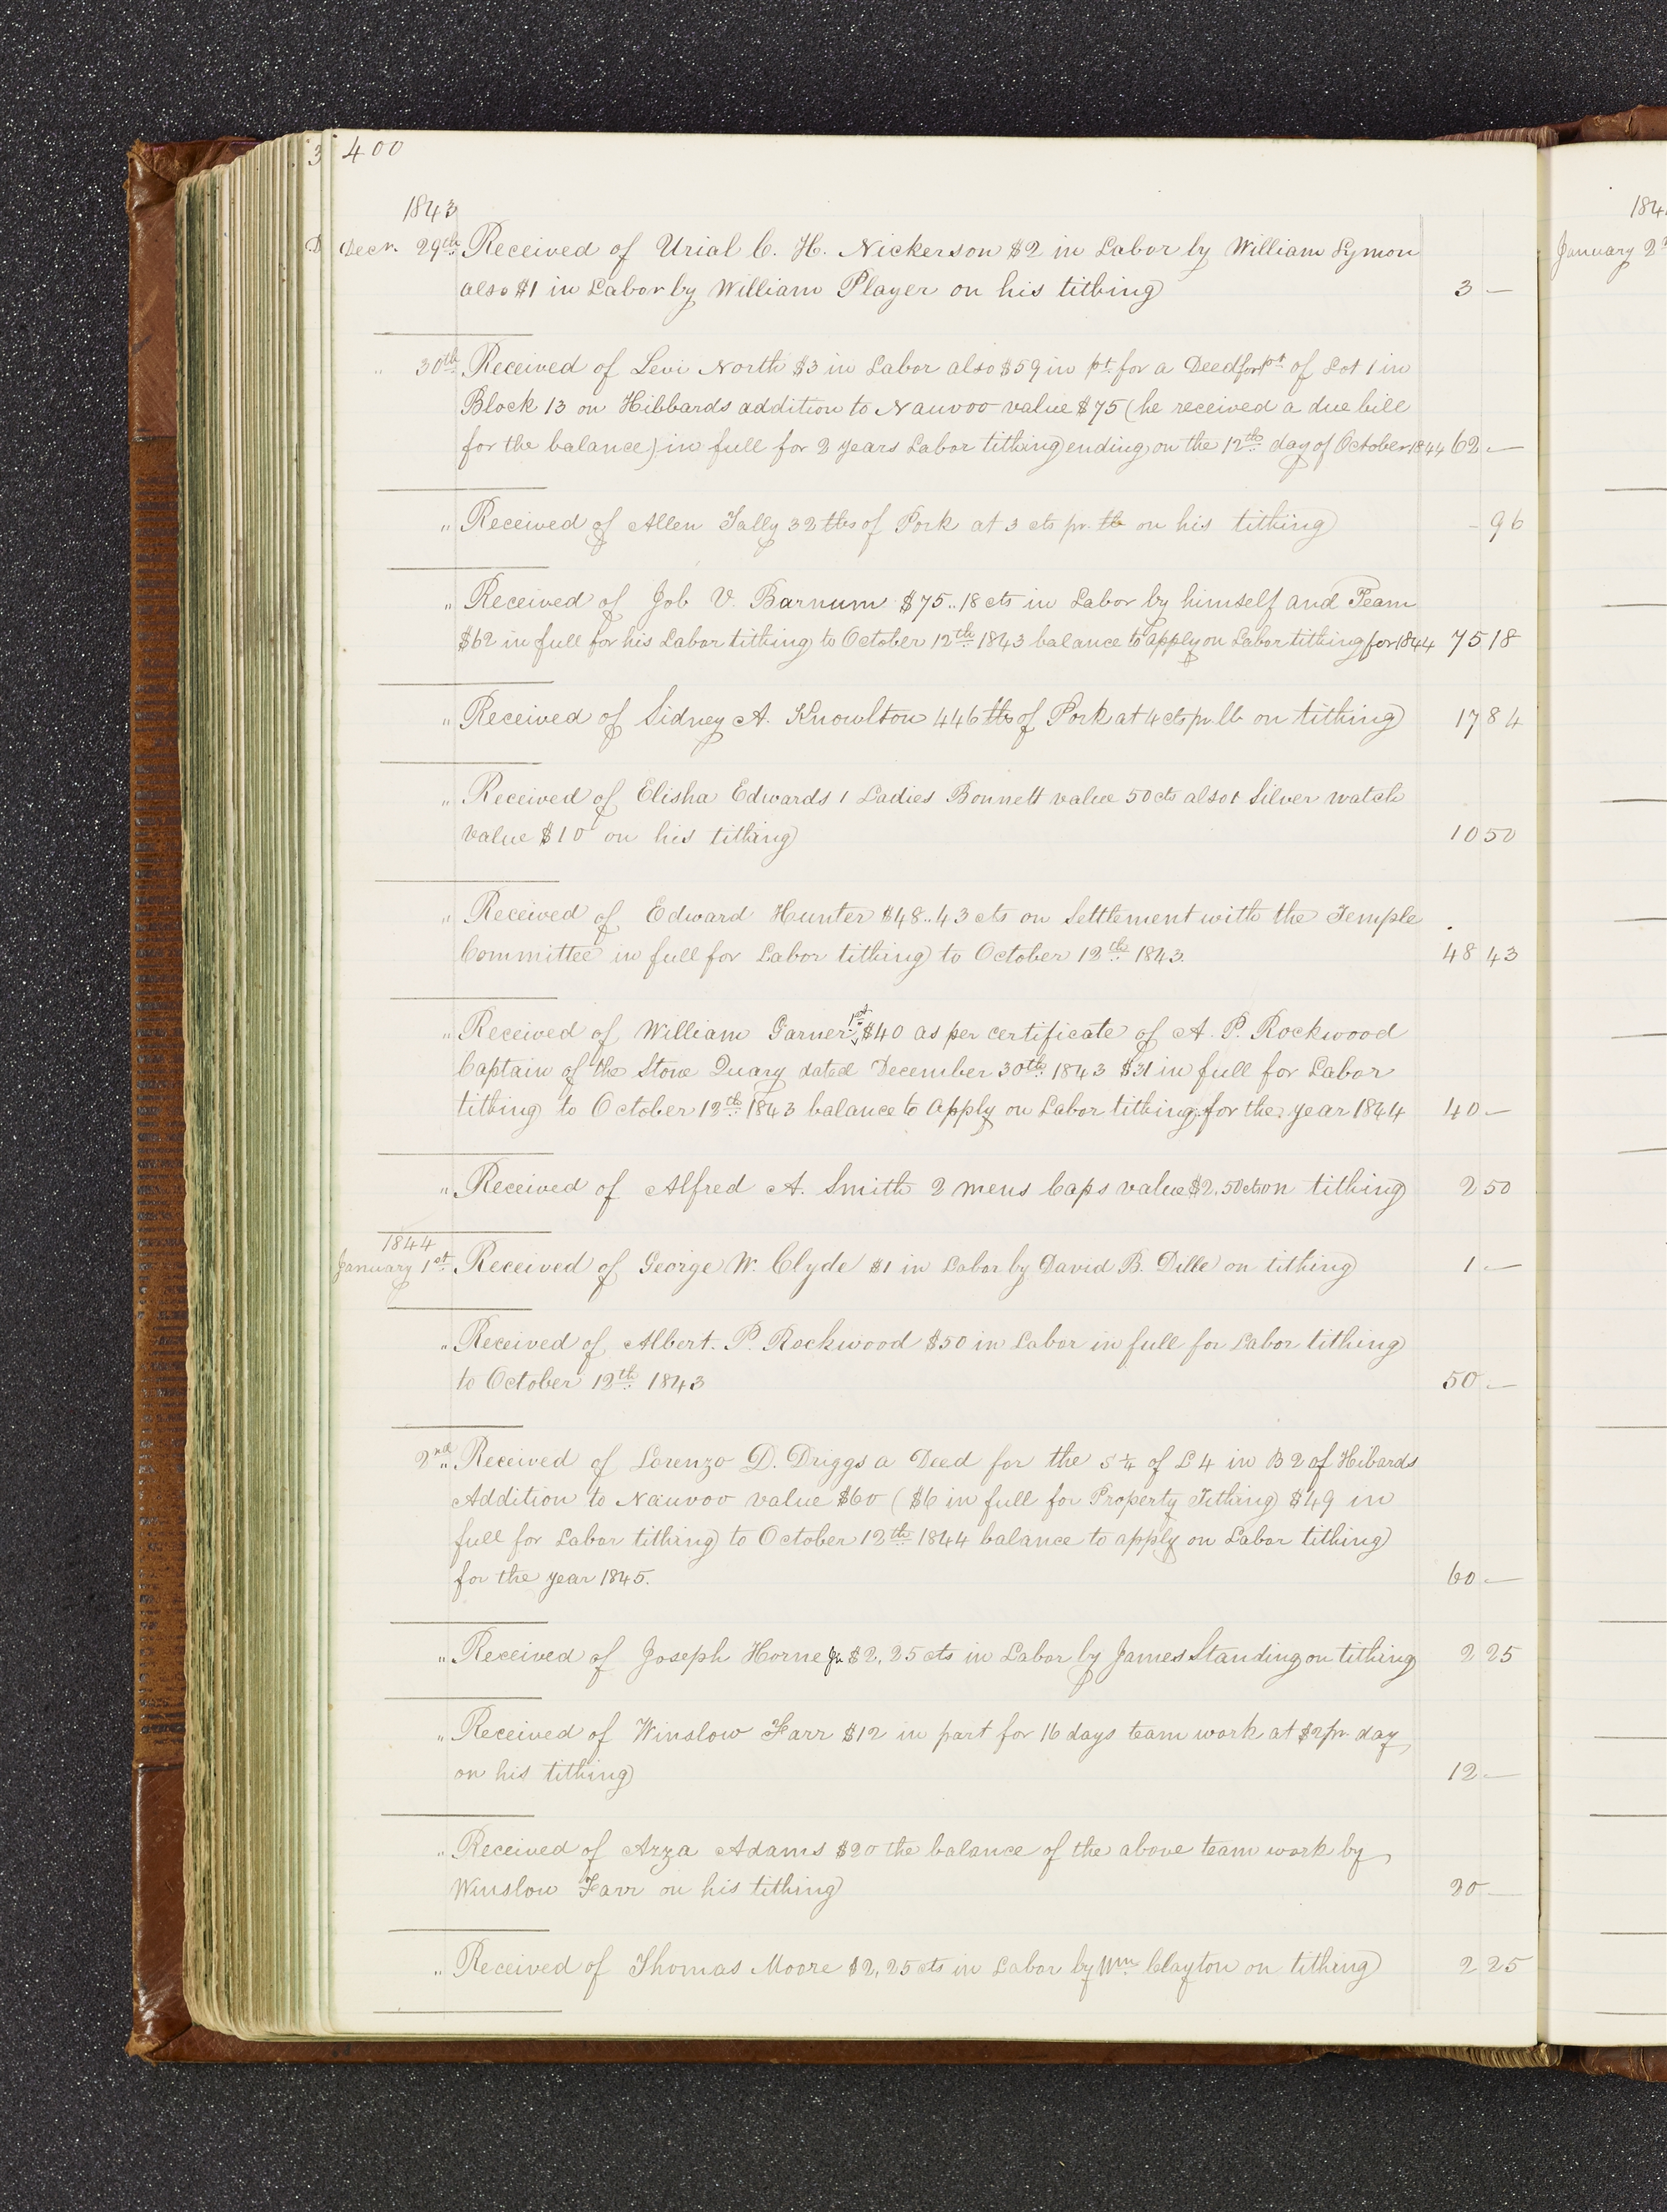 3 400
1843
D Decr. 29th Received of Urial C. H. Nickerson $2 in Labor by William Lymon
also $1 in Labor by William Player on his tithing 3 —
" 30th Received of Levi North $3 in Labor also $59 in pt for a Deed for pt of Lot 1 in
Block 13 on Hibbards addition to Nauvoo value $75 (he received a due bill
for the balance) in full for 2 years Labor tithing ending on the 12th day of October 1844 62 —
" Received of Allen Tally 32 lbs of Pork at 3 cts pr. lb on his tithing - 96
" Received of Job V. Barnum $75..18 cts in Labor by himself and Team
$62 in full for his Labor tithing to October 12th 1843 balance to apply on Labor tithing for 1844 75 18
" Received of Sidney A. Knowlton 446 lbs of Pork at 4 cts pr. lb on tithing 17 84
" Received of Elisha Edwards 1 Ladies Bonnett value 50 cts also 1 Silver watch
value $10 on his tithing 10 50
" Received of Edward Hunter $48..43 cts on Settlement with the Temple
Committee in full for Labor tithing to October 12th 1843. 48 43
" Received of William Garner 1st $40 as per certificate of A. P. Rockwood
Captain of the Stone Quary dated December 30th 1843 $31 in full for Labor
tithing to October 12th 1843 balance to apply on Labor tithing for the year 1844 40 —
" Received of Alfred A. Smith 2 mens Caps value $2.50 cts on tithing 2 50
1844
January 1st Received of George W. Clyde $1 in Labor by David B. Dille on tithing 1 —
" Received of Albert. P. Rockwood $50 in Labor in full for Labor tithing
to October 12th 1843 50 —
2nd " Received of Lorenzo D. Driggs a Deed for the S ¼ of L 4 in B 2 of Hibards
Addition to Nauvoo value $60 ($6 in full for Property Tithing) $49 in
full for Labor tithing to October 12th 1844 balance to apply on Labor tithing
for the year 1845. 60 —
" Received of Joseph Horne Jr $2,25 cts in Labor by James Standing on tithing 2 25
" Received of Winslow Farr $12 in part for 16 days team work at $2 pr. day
on his tithing 12 —
" Received of Arza Adams $20 the balance of the above team work by
Winslow Farr on his tithing 20 —
" Received of Thomas Moore $2,25 cts in Labor by Wm Clayton on tithing 2 25
184
January 2